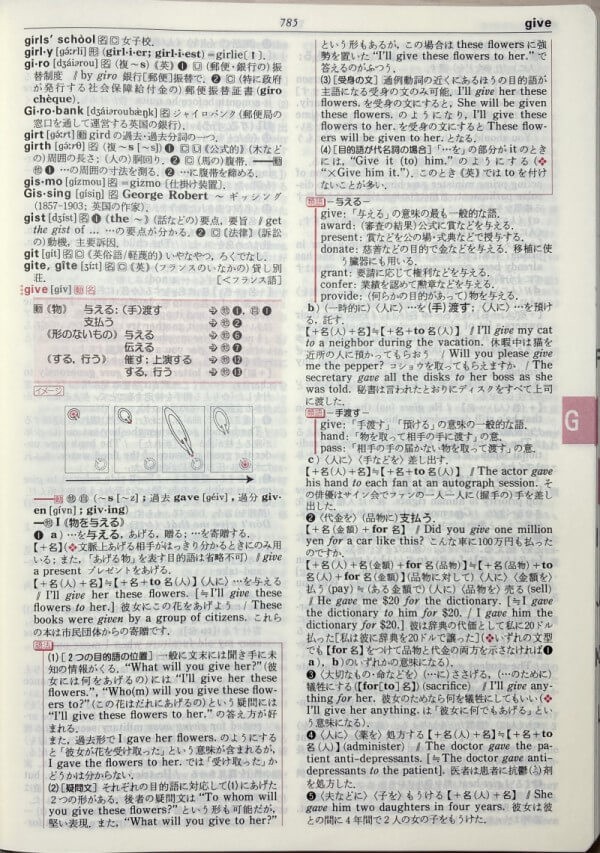 785
give
girls' schòol 名 C 女子校.
girl·y [gə́ːrli] 形 (girl·i·er; girl·i·est) =girlie[↑].
gi·ro [dʒáiərou] 名 (複 ~s) (英) ❶ U (郵便・銀行の)振
替制度 // by giro 銀行[郵便]振替で. ❷ C (特に政府
が発行する社会保障給付金の)郵便振替証書(giro
chèque).
Gi·ro·bank [dʒáiəroubæ̀ŋk] 名 ジャイロバンク(郵便局の
窓口を通して運営する英国の銀行).
girt [gə́ːrt] 動 gird の過去・過去分詞の一つ.
girth [gə́ːrθ] 名 (複 ~s) ❶ C U (公式的) (木など
の)周囲の長さ; (人の)胴回り. ❷ C (馬の)腹帯. ━━動
他 ❶ …の周囲の寸法を測る. ❷ …に腹帯を締める.
gis·mo [gízmou] 名 =gizmo [仕掛け装置].
Gis·sing [gísiŋ] George Robert ~ ギッシング
(1857-1903; 英国の作家).
gist [dʒíst] 名 ❶ (the ~) (話などの)要点, 要旨 // get
the gist of ... …の要点が分かる. ❷ C [法律] (訴訟
の)動機, 主要訴因.
git [gít] 名 C (英俗語/軽蔑的) いやなやつ, ろくでなし.
gite, gîte [ʒíːt] 名 C (英) (フランスのいなかの)貸し別
荘. [<フランス語]
give [gív] 動 名
動 (物) 与える: (手)渡す → 他 ❶, 自 ❶
支払う → 他 ❷
(形のないもの) 与える → 他 ❻
伝える → 他 ❼
(する, 行う) 催す; 上演する → 他 ⓬
する, 行う → 他 ⓭
イメージ
━━動 他 自 (~s [~z]; 過去 gave [géiv], 過分 giv·
en [gívn]; giv·ing)
━他 I (物を与える)
❶ a) …を与える, あげる, 贈る; …を寄贈する.
【+名】(❖文脈上あげる相手がはっきり分かるときにのみ用
いる; また, 「あげる物」を表す目的語は省略不可) // give
a present プレゼントをあげる.
【+名(人)+名】≒【+名+to 名(人)】(人に) …を与える
// I'll give her these flowers. [≒I'll give these
flowers to her.] 彼女にこの花をあげよう / These
books were given by a group of citizens. これら
の本は市民団体からの寄贈です.
語法
(1) [2つの目的語の位置] 一般に文末には聞き手に未
知の情報がくる. "What will you give her?" (彼
女には何をあげるの)には "I'll give her these
flowers.", "Who(m) will you give these flow-
ers to?" (この花はだれにあげるの)という疑問には
"I'll give these flowers to her." の答え方が好
まれる.
また, 過去形で I gave her flowers. のようにする
と「彼女が花を受け取った」という意味が含まれるが,
I gave the flowers to her. では「受け取った」か
どうかは分からない.
(2) [疑問文] それぞれの目的語に対応して(1)にあげた
2つの形がある. 後者の疑問文は "To whom will
you give these flowers?" という形も可能だが,
堅い表現. また, "What will you give to her?"
という形もあるが, この場合は these flowers に強
勢を置いた "I'll give these flowers to her." で
答えるのがふつう.
(3) [受身の文] 通例動詞の近くにあるほうの目的語が
主語になる受身の文のみ可能. I'll give her these
flowers. を受身の文にすると, She will be given
these flowers. のようになり, I'll give these
flowers to her. を受身の文にすると These flow-
ers will be given to her. となる.
(4) [目的語が代名詞の場合] 「…を」の部分が it のとき
には, "Give it (to) him." のようにする (❖
"×Give him it."). このとき (英) では to を付け
ないことが多い.
類語 ―与える―
give: 「与える」の意味の最も一般的な語.
award: (審査の結果)公式に賞などを与える.
present: 賞などを公の場・式典などで授与する.
donate: 慈善などの目的で金などを与える. 移植に使
う臓器にも用いる.
grant: 要請に応じて権利などを与える.
confer: 業績を認めて勲章などを与える.
provide: (何らかの目的があって)物を与える.
b) (一時的に) (人に) …を(手)渡す; (人に) …を預け
る, 託す.
【+名(人)+名】≒【+名+to 名(人)】 // I'll give my cat
to a neighbor during the vacation. 休暇中は猫を
近所の人に預かってもらおう / Will you please give
me the pepper? コショウを取ってもらえますか / The
secretary gave all the disks to her boss as she
was told. 秘書は言われたとおりにディスクをすべて上司
に渡した.
類語 ―手渡す―
give: 「手渡す」「預ける」の意味の一般的な語.
hand: 「物を取って相手の手に渡す」の意.
pass: 「相手の手の届かない物を取って渡す」の意.
c) (人に) (手などを) 差し出す.
【+名(人)+名】≒【+名+to 名(人)】 // The actor gave
his hand to each fan at an autograph session. そ
の俳優はサイン会でファンの一人一人に(握手の)手を差し
出した.
❷ (代金を) (品物に) 支払う.
【+名(金額)+for 名】 // Did you give one million
yen for a car like this? こんな車に100万円も払った
のですか.
【+名(人)+名(金額)+for 名(品物)】≒【+名(品物)+to
名(人)+for 名(金額)】(品物に対して) (人に) (金額を)
払う(pay); (ある金額で) (人に) (品物を) 売る(sell)
// He gave me $20 for the dictionary. [≒I gave
the dictionary to him for $20. / I gave him the
dictionary for $20.] 彼は辞典の代価として私に20ドル
払った[私は彼に辞典を20ドルで譲った] (❖いずれの文型
でも【for 名】をつけて品物と代金の両方を示さなければ❶
a), b)のいずれかの意味になる).
❸ (大切なもの・命などを) (…に) ささげる, (…のために)
犠牲にする【[for[to] 名】(sacrifice) // I'll give any-
thing for her. 彼女のためなら何を犠牲にしてもいい(❖
I'll give her anything. は「彼女に何でもあげる」とい
う意味になる).
❹ (人に) (薬を) 処方する【+名(人)+名】≒【+名+to
名(人)】(administer) // The doctor gave the pa-
tient anti-depressants. [≒The doctor gave anti-
depressants to the patient]. 医者は患者に抗鬱(うつ)剤
を処方した.
❺ (夫などに) (子を) もうける【+名(人)+名】 // She
gave him two daughters in four years. 彼女は彼
との間に4年間で2人の女の子をもうけた.
G